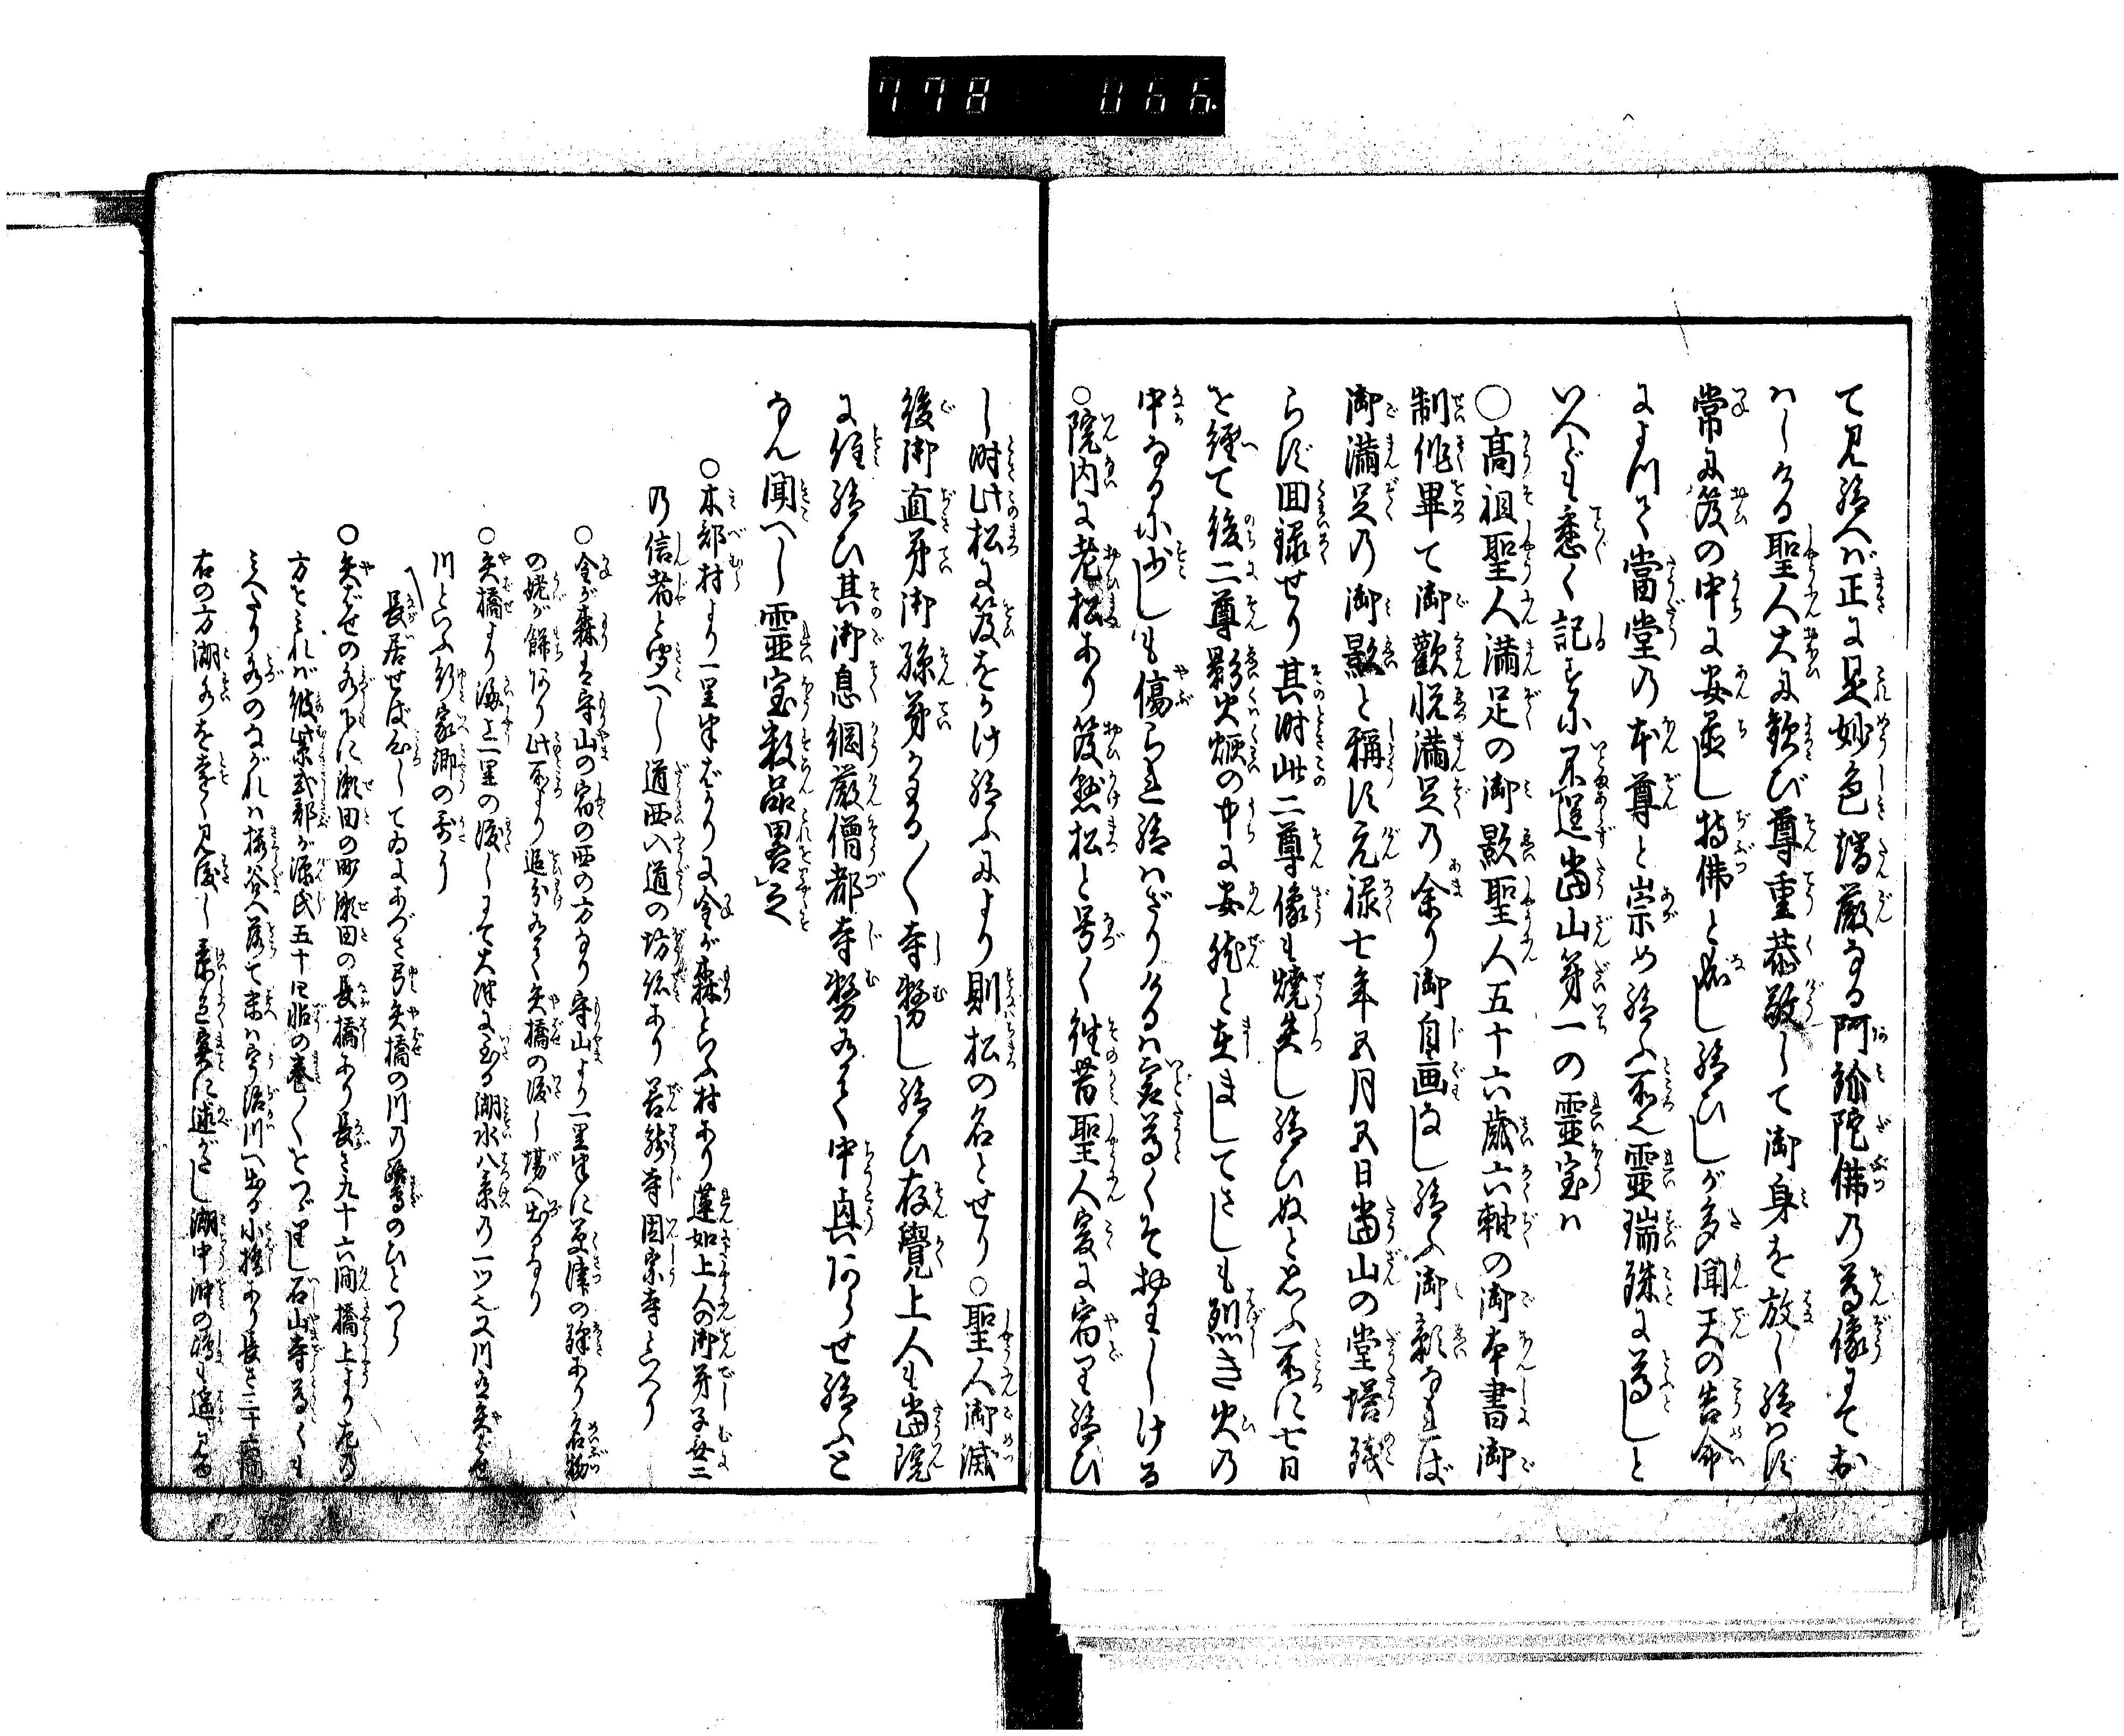 778 066
て見給へば正に是妙色端厳なる阿弥陀佛の尊像にてお
はしける聖人大に歓び尊重恭敬して御身を放し給はず
常に笈の中に安置し持佛となし給ひしが多聞天の告命
によつて當堂の本尊と崇め給ふ所也霊瑞殊に尊しと
いへども悉く記すに不遑當山第一の霊宝は
○高祖聖人満足の御影聖人五十六歳六軸の御本書御
制作畢て御歡悦満足の余り御自画なし給ふ御影なれば
御満足の御影と稱す元禄七年五月五日當山の堂塔残
らず回禄せり其時此二尊像も燒失し給ひぬと思ふ所に七日
を經て後二尊影火燼の中に安然と在ましてさしも烈き火の
中なるに少しも傷られ給はざりけるは实尊くぞおはしける
○院内に老松あり笈懸松と号く徃昔聖人爰に宿り給ひ
し時此松に笈をかけ給ふにより則松の名とせり○聖人御滅
後御直弟御孫弟かはる〱寺務し給ひ存覺上人も當院
に住給ひ其御息綱厳僧都寺務有て中興あらせ給ふと
なん聞へし霊宝数品畧之
○木部村より一里半ばかりに金が森といふ村あり蓮如上人の御弟子無二
の信者と聞へし道西入道の坊跡あり善龍寺因宗寺といへり
○金が森は守山の宿の西の方なり守山より一里半に草津の驛あり名物
の姥が餅あり此所より追分有て矢橋の渡し場へ出るなり
○矢橋より海上一里の渡しにて大津に至る湖水八景の一ツ也又川を矢ばせ
川といふ行家卿の哥う
長居せば
てゐよあづさ弓矢橋の川の鷺のひとつら
○矢ばせの
に瀬田の町瀬田の長橋あり長さ九十六間橋上より左の
方をみれば彼紫式部が源氏五十四帖の巻〱をつゞりし石山寺尊くも
みへたり水のながれは桜谷へ落て末は宇治川へ出る小橋あり長さ三十六間
右の方湖水を遠く見渡し景色寔に述がたし湖中沖の嶋も遥に見ゆ